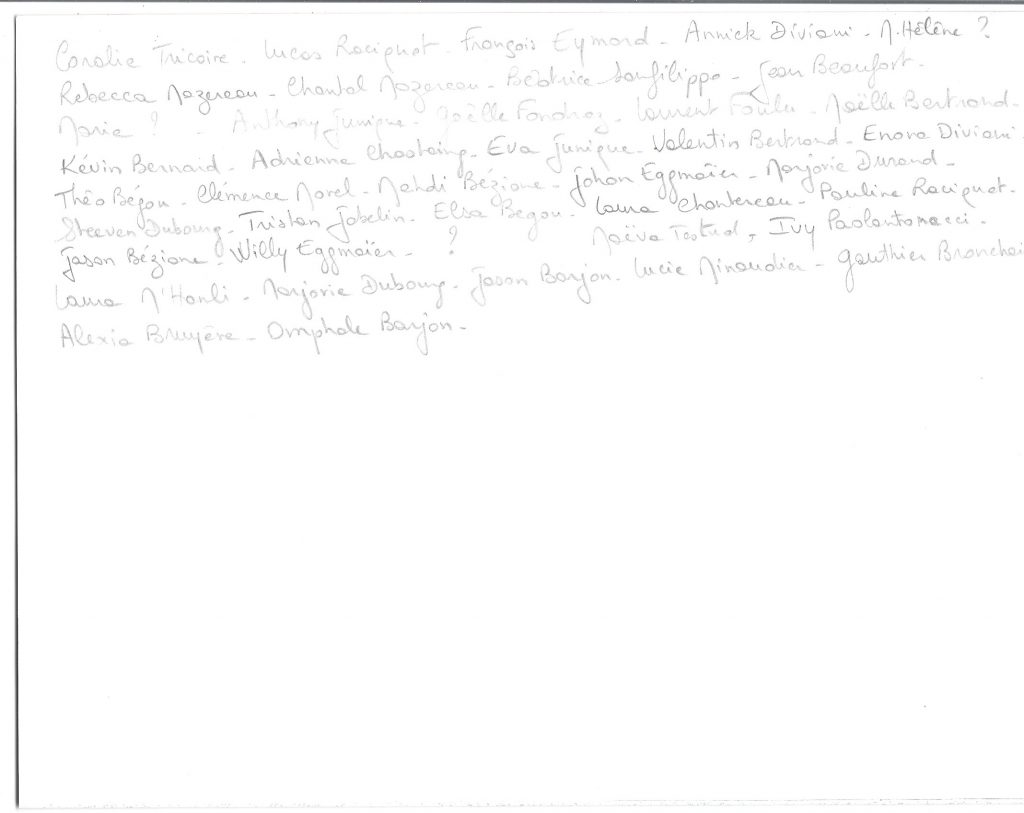 Coralie Tricoire - Lucas Raciquot - François Eymard - Annick Diviani - M.Hélène ?
Rebecca Mazereau - Chantal Mazereau - Béatrice Sanfilippo - Jean Beaufort -
Marie ? - Anthony Junique - Gaëlle Fondraz - Laurent Foulu - Maëlle Bertrand -
Kévin Bernard - Adrienne Chastaing - Eva Junique - Valentin Bertrand - Enora Diviani
Théo Bégou - Clémence Morel - Mehdi Bézione - Johan Eggmaïer - Marjorie Durand -
Steeven Dubourg - Tristan Jobelin - Elsa Begou - Laura Chantereau - Pauline Raciquot -
Jason Bézione - Willy Eggmaïer - ? Maëva Testud, Ivy Paolantonacci -
Laura M'Hanli - Marjorie Dubourg - Jason Barjon - Lucie Minaudier - Gauthier
Alexia Bruyère - Omphale Barjon -